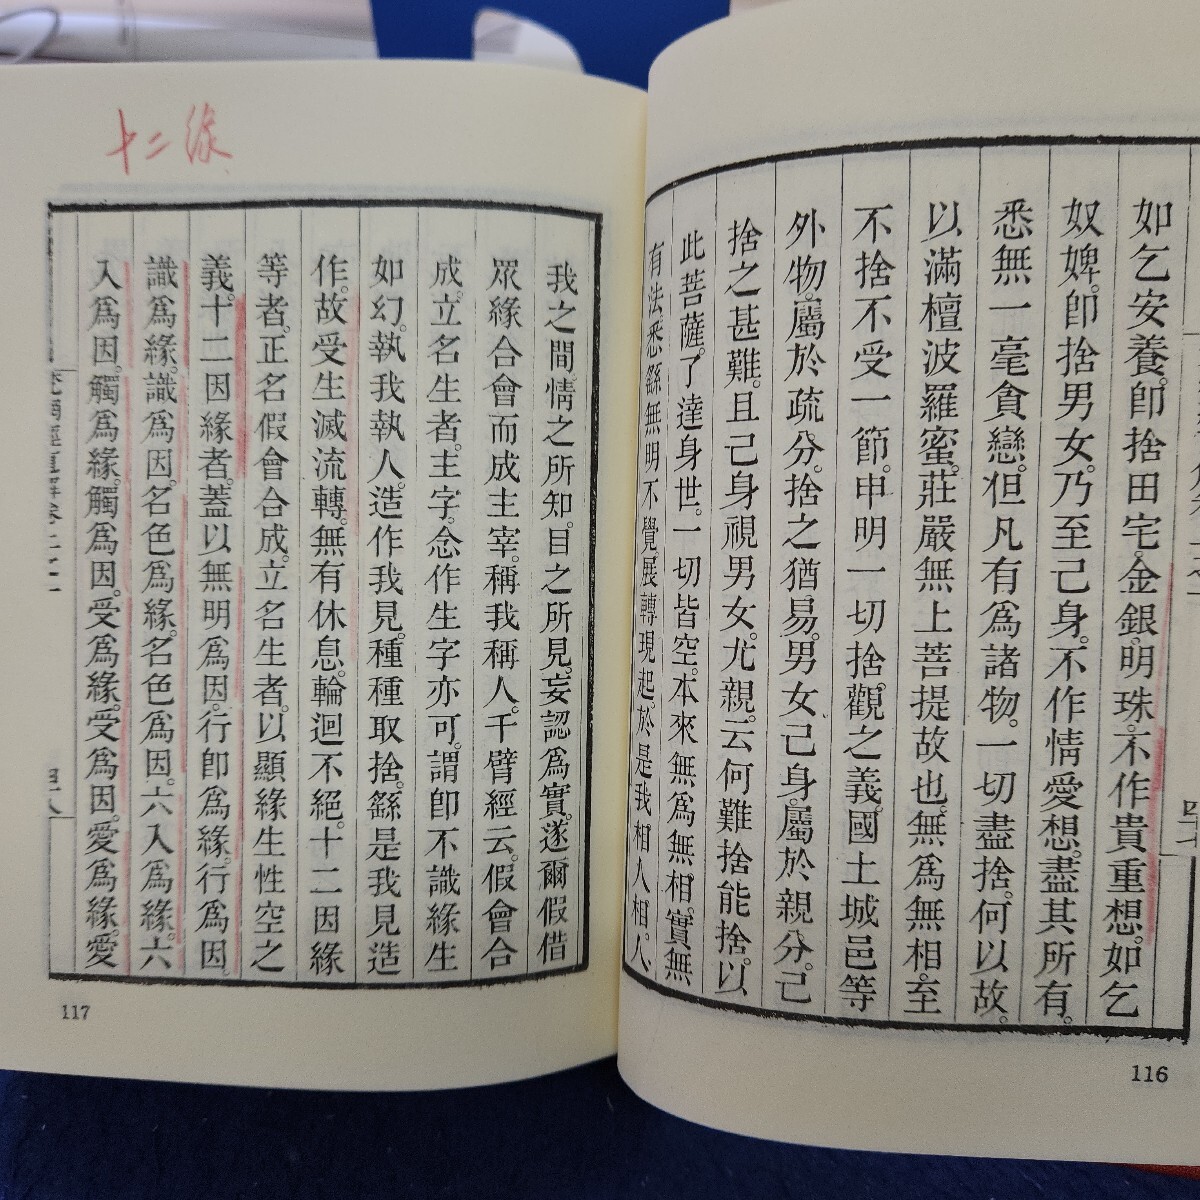 如乞安養。即捨田宅。金銀。明珠。不作貴重想。如乞
奴婢。即捨男女。乃至己身。不作情愛想。盡其所有。
悉無一毫貪戀。但凡有爲諸物。一切盡捨。何以故。
以滿檀波羅蜜。莊嚴無上菩提故也。無爲無相。至
不捨不受一節。申明一切捨。觀之義。國土城邑等
外物。屬於疏分。捨之猶易。男女己身。屬於親分。己
捨之甚難。且己身視男女。尤親。云何難捨能捨。以
此菩薩。了達身世。一切皆空。本來無爲無相。實無
有法。悉繇無明不覺。展轉現起。於是我相人相。人
116
十二緣
我之間。情之所知。目之所見。妄認爲實。遂爾假借
眾緣合會而成主宰。稱我稱人。千臂經云。假會合
成。立名生者。主字。念作生字亦可。謂即不識緣生
如幻。執我執人。造作我見。種種取捨。繇是我見造
作。故受生滅流轉。無有休息。輪迴不絕。十二因緣
等者。正名假會合成。立名生者。以顯緣生性空之
義。十二因緣者。蓋以無明爲因。行即爲緣。行爲因。
識爲緣。識爲因。名色爲緣。名色爲因。六入爲緣。六
入爲因。觸爲緣。觸爲因。受爲緣。受爲因。愛爲緣。愛
117